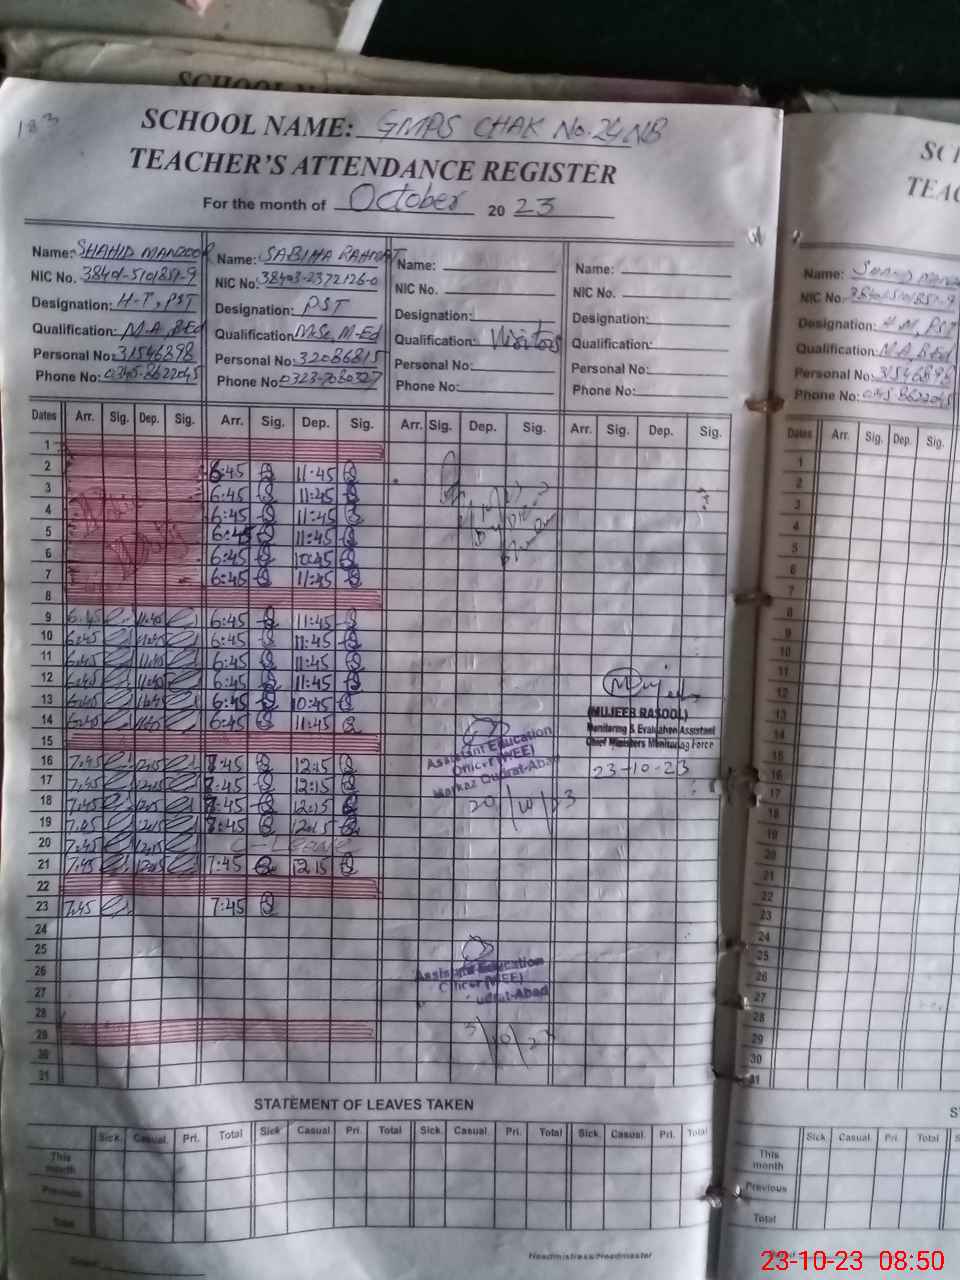 SCHOOL NAME: GMPS CHAK No. 24NB
TEACHER'S ATTENDANCE REGISTER
For the month of October 20 23
183
Name: SHAHID MANZOOR
NIC No. 38401-5101857-9
Designation: H-T, PST
Qualification: M.A, B.Ed
Personal No: 31546898
Phone No: 0345-8622045
Name: SABIHA RAHMAT
NIC No. 38403-2372126-0
Designation: PST
Qualification M.Sc, M-Ed
Personal No: 32086815
Phone No: 0323-7080327
Name:
NIC No.
Designation:
Qualification: Visitors
Personal No:
Phone No:
Name:
NIC No.
Designation:
Qualification:
Personal No:
Phone No:
Dates Arr. Sig. Dep. Sig. Arr. Sig. Dep. Sig. Arr. Sig. Dep. Sig. Arr. Sig. Dep. Sig.
1
2 6:45 11:45
3 6:45 11:45
4 6:45 11:45
5 6:45 11:45
6 6:45 10:45
7 6:45 11:45
8
9 6:45 11:45 6:45 11:45
10 6:45 11:45 6:45 11:45
11 6:45 11:45 6:45 11:45
12 6:45 11:45 6:45 11:45
13 6:45 10:45 6:45 10:45
14 6:45 11:45 6:45 11:45
15
16 7:45 12:15 7:45 12:15
17 7:45 12:15 7:45 12:15
18 7:45 12:15 7:45 12:15
19 7:45 12:15 7:45 12:15
20 7:45 12:15 C-Leave
21 7:45 12:15 7:45 12:15
22
23 7:45 7:45
24
25
26
27
28
29
30
31
(MUJEEB RASOOL)
Monitoring & Evaluation Assistant
Chief Ministers Monitoring Force
23-10-23
Assistant Education
Officer (WEE)
Markaz Qudrat-Abad
20/10/23
Assistant Education
Officer (WEE)
Qudrat-Abad
3/10/23
STATEMENT OF LEAVES TAKEN
Sick. Casual. Pri. Total Sick Casual Pri. Total Sick. Casual. Pri. Total Sick. Casual. Pri. Total
This month
Previous
Total
Headmistress/Headmaster
Name: SHAHID
NIC No. 38401-5101857-9
Designation: H.M, PST
Qualification: M.A, B.Ed
Personal No: 31546898
Phone No: 0345-8622045
Dates Arr. Sig. Dep. Sig.
1
2
3
4
5
6
7
8
9
10
11
12
13
14
15
16
17
18
19
20
21
22
23
24
25
26
27
28
29
30
31
Sick Casual Pri. Total
This month
Previous
Total
23-10-23 08:50